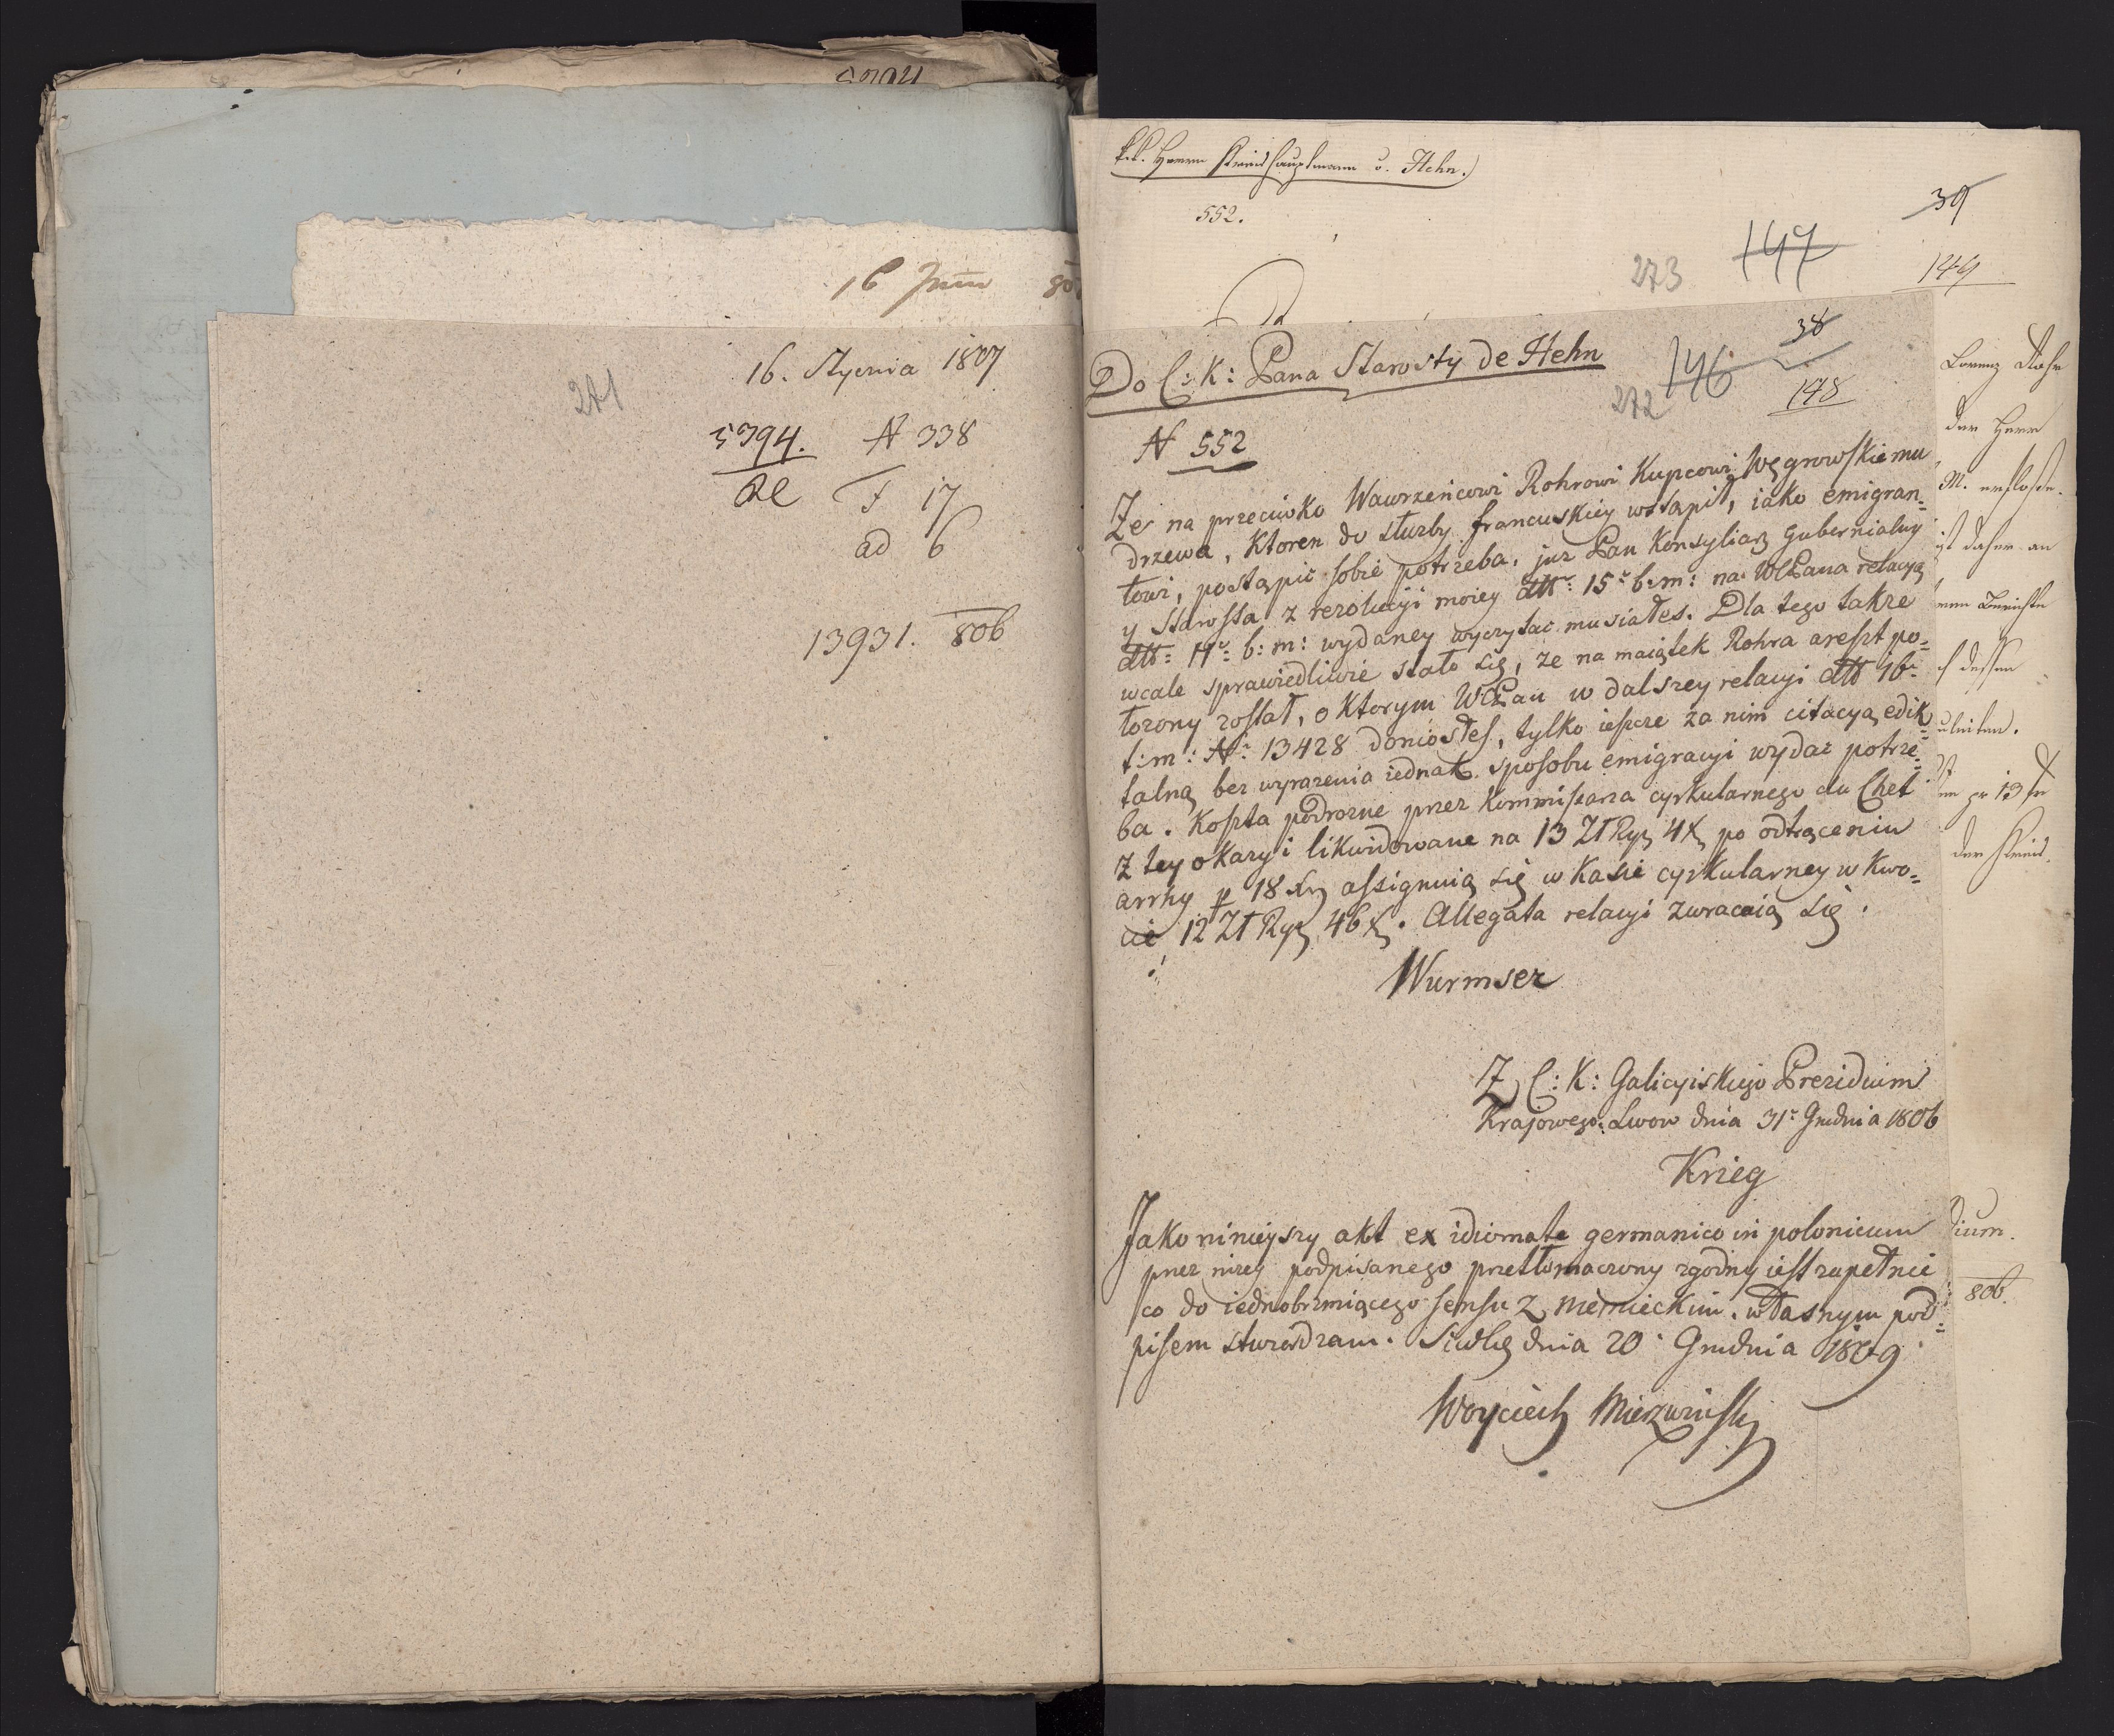 16 Juni 80
16. Stycznia 1807
271
5394. N 338
F 17
ad 6
13931. 806
k.k. Herrn Kreishauptmann v. Hehn.
552.
39
147
273
149
Do C: K: Pana Starosty de Hehn
38
146
272
148
N 552
Ze na przeciwko Wawrzeńcowi Rohrowi Kupcowi Węgrowskiemu
drzewa, Ktoren do służby francuskiey wstąpił, iako emigran=
towi, postąpić sobie potrzeba, juz Pan Konsyliarz gubernialny
y Starosta z rezolucyi moiey dtto: 15c b:m: na WCPana relacyą
dtto: 11c b:m: wydaney wyczytac musiałes. Dla tego także
wcale sprawiedliwie stało się, ze na maiątek Rohra areszt po=
łozony zostat, o Ktorym WCPan w dalszey relacyi dtto 16c
t:m: Nc 13428 doniosłes, tylko ieszcze za nim citacyą edik=
talną bez wyrazenia iednak sposobu emigracyi wydac potrze=
ba. Koszta podrozne przez Kommissarza cyrkularnego du Chet
z tey okazyi likwidowane na 13 Zł Ryń 4 X po odtrąceniu
arrhy p 18 Xr assignuią się w Kasie cyrkularney w Kwo=
cie 12 Zł Ryń 46 X. Allegata relacyi zwracaią się.
Wurmser
Z C: K: Galicyiskiego Prezidium
Krajowego. Lwow dnia 31c Grudnia 1806
Krieg
Jako ninieyszy akt ex idiomate germanico in polonicum
przez nizey podpisanego przetłomaczony zgodny iest zupełnie
co do iednobrzmiącego sensu z niemieckim. własnym pod=
pisem stwierdzam. Siedlce dnia 20. Grudnia 1809
Woyciech Mierzwinski
Lorenz Rohr
der Herr
ist daher an
Berichte
dessen
13
der Kreis
dium.
806.